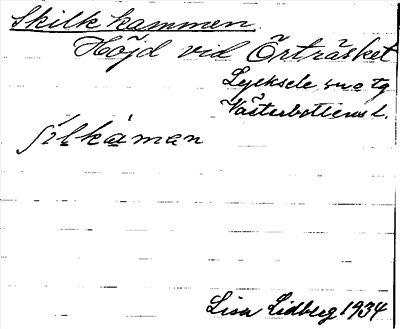 Skilkkammen.
Höjd vid Örträsket
Lycksele tg
Västerbottens l.
ʃilkáman
Lisa Lidberg 1934